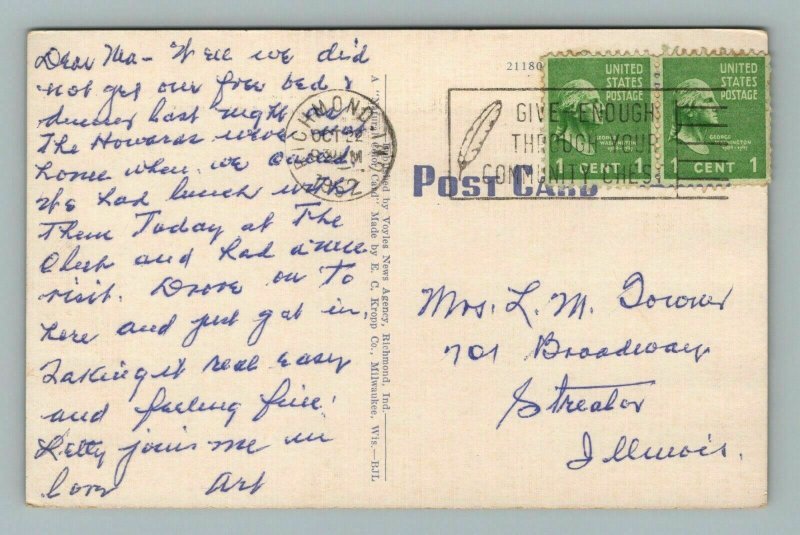 Dear Ma - Well we did
not get our free bed &
dinner last night
The Howards were not
home when we called
We had lunch with
them Today at The
Club and had a nice
visit. Drove on To
here and just got in.
Taking it real easy
and feeling fine.
Letty joins me in
Love Art
A "Natural Color Card" Made by E. C. Kropp Co., Milwaukee, Wis.—BJL
Published by Voyles News Agency, Richmond, Ind.
21180
RICHMOND, IND.
OCT 22
PM
1952
GIVE ENOUGH
THROUGH YOUR
COMMUNITY CHEST
UNITED
STATES
POSTAGE
GEORGE
WASHINGTON
1 CENT 1
UNITED
STATES
POSTAGE
GEORGE
WASHINGTON
1 CENT 1
POST CARD
Mrs. L. M.
701 Broadway
Streator
Illinois.